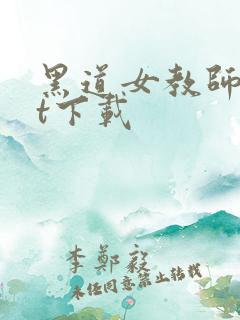 黑道女教師
t下載
李鄭毅
未经同意禁止转载